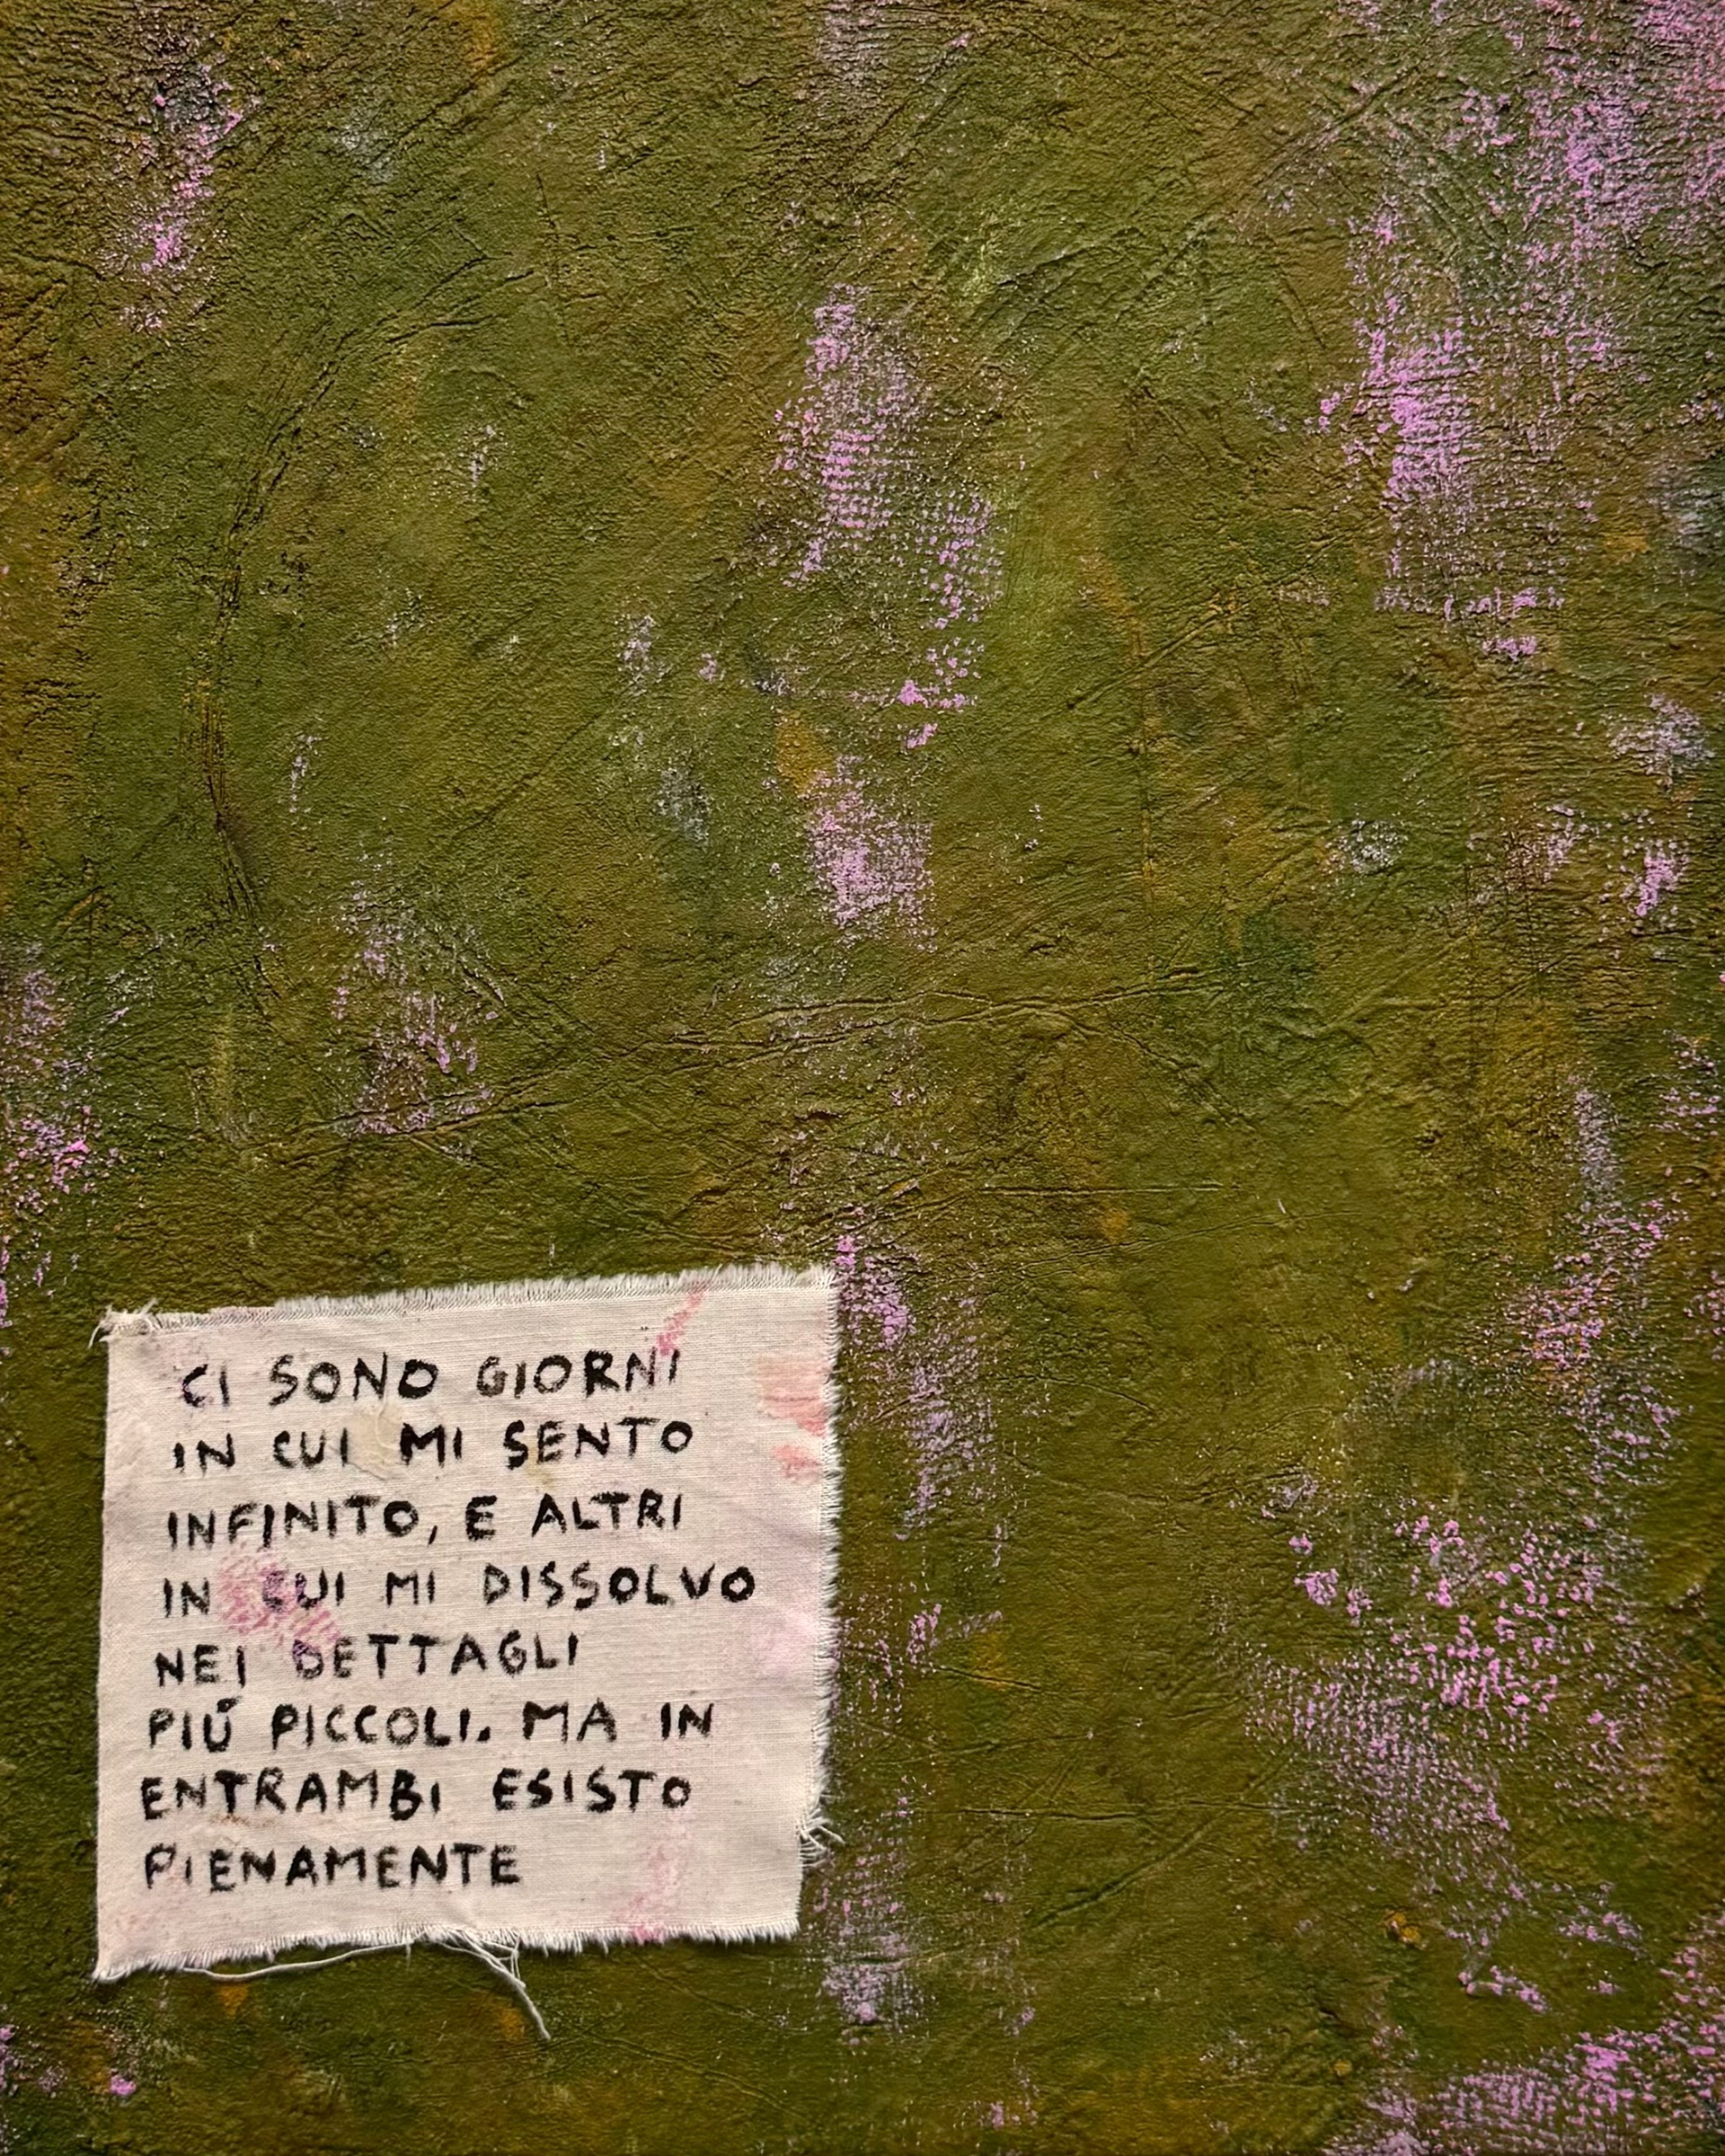 CI SONO GIORNI
IN CUI MI SENTO
INFINITO, E ALTRI
IN CUI MI DISSOLVO
NEI DETTAGLI
PIÚ PICCOLI. MA IN
ENTRAMBI ESISTO
PIENAMENTE